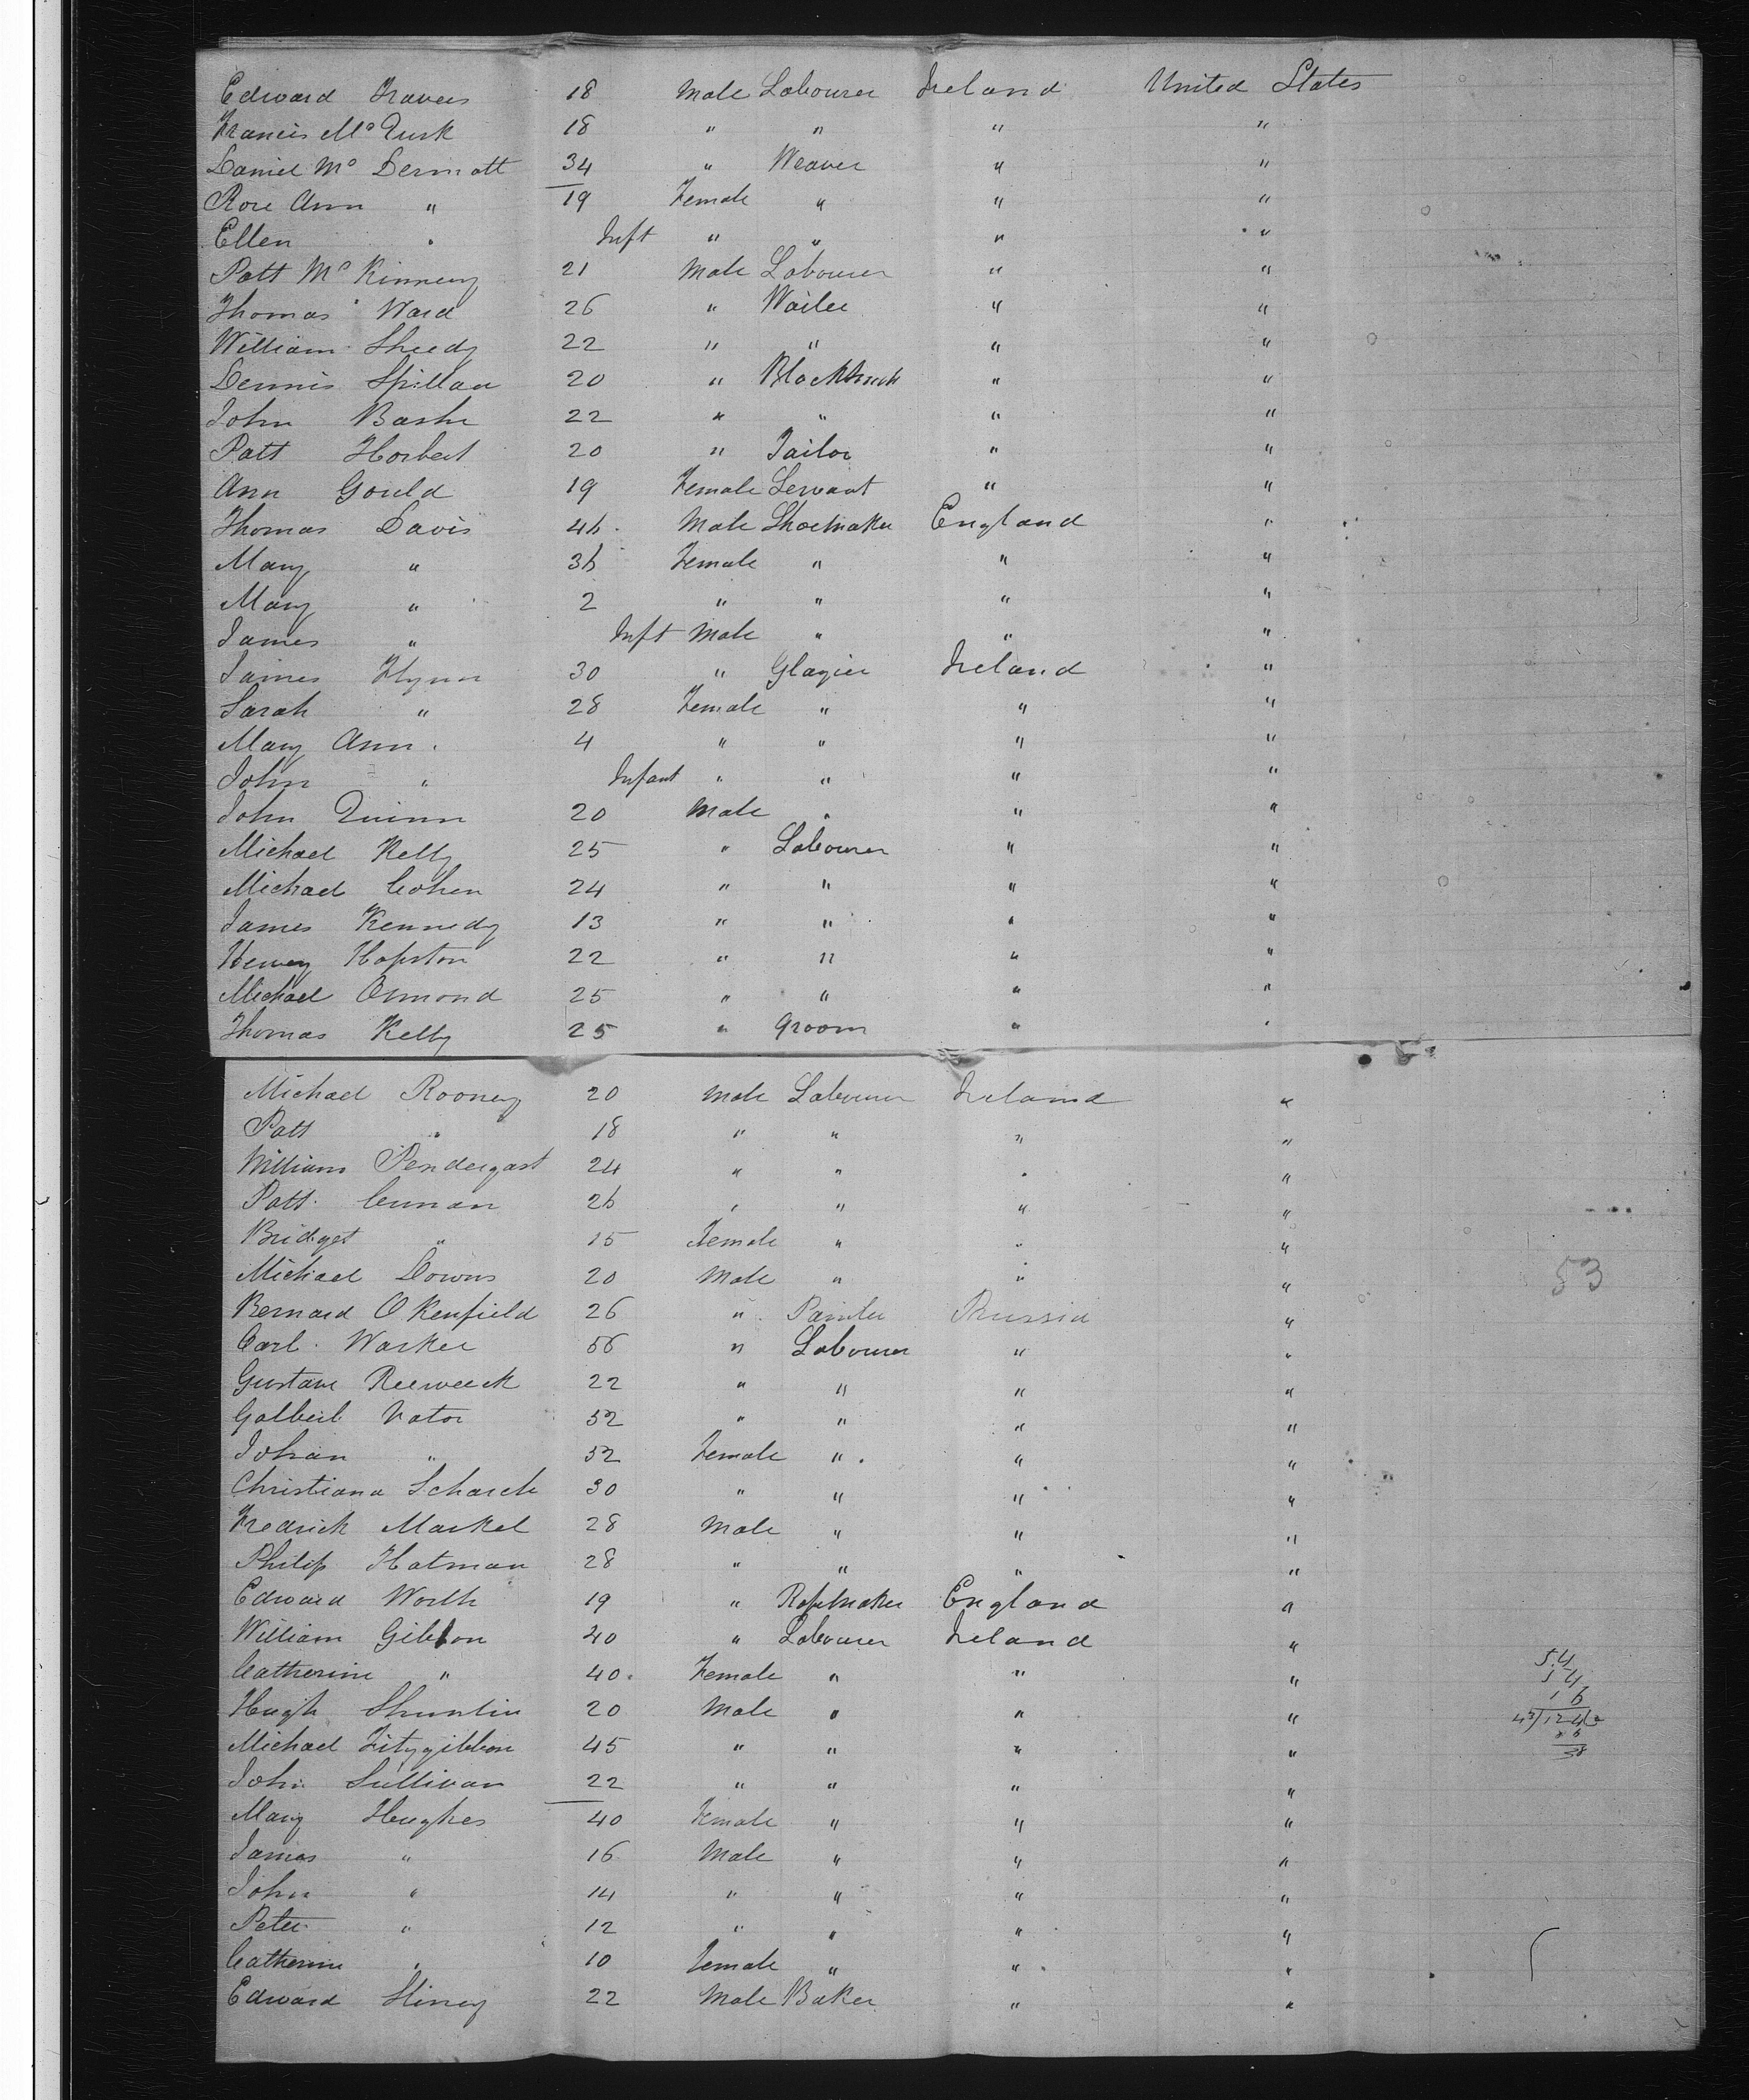 Edward Travers 18 Male Labourer Ireland United States
Francis Mc Turk 18 " " " "
Daniel Mc Dermott 34 " Weaver " "
Rose Ann " 19 Female " " "
Ellen " Inft " " " "
Patt Mc Kinney 21 Male Labourer " "
Thomas Ward 26 " Wailer " "
William Sheedy 22 " " " "
Dennis Spillan 20 " Blacksmith " "
John Bashe 22 " " " "
Patt Horbert 20 " Tailor " "
Ann Gould 19 Female Servant " "
Thomas Davis 46 Male Shoemaker England "
Mary " 36 Female " " "
Mary " 2 " " " "
James " Inft Male " " "
James Flynn 30 " Glazier Ireland "
Sarah " 28 Female " " "
Mary Ann " 4 " " " "
John " Infant " " " "
John Quinn 20 Male " " "
Michael Kelly 25 " Labourer " "
Michael Cohen 24 " " " "
James Kennedy 13 " " " "
Henry Hopston 22 " " " "
Michael Osmond 25 " " " "
Thomas Kelly 25 " Groom " "
Michael Rooney 20 Male Labourer Ireland "
Patt " 18 " " " "
William Pendergast 24 " " " "
Patt Cunnan 26 " " " "
Bridget " 15 Female " " "
Michael Downs 20 Male " " "
53
Bernard O Kenfield 26 " Painter Prussia "
Carl Warker 56 " Labourer " "
Gustave Reeweeck 22 " " " "
Galbeib Vator 52 " " " "
Johan " 52 Female " " "
Christiana Scharch 30 " " " "
Fredrick Markel 28 Male " " "
Philip Hatman 28 " " " "
Edward Worth 19 " Ropemaker England "
William Gibbon 40 " Labourer Ireland "
Catherine " 40 Female " " "
Hugh Shunlin 20 Male " " "
Michael Fitzgibbon 45 " " " "
John Sullivan 22 " " " "
Mary Hughes 40 Female " " "
James " 16 Male " " "
John " 14 " " " "
Peter " 12 " " " "
Catherine " 10 Female " " "
Edward Hiney 22 Male Baker " "